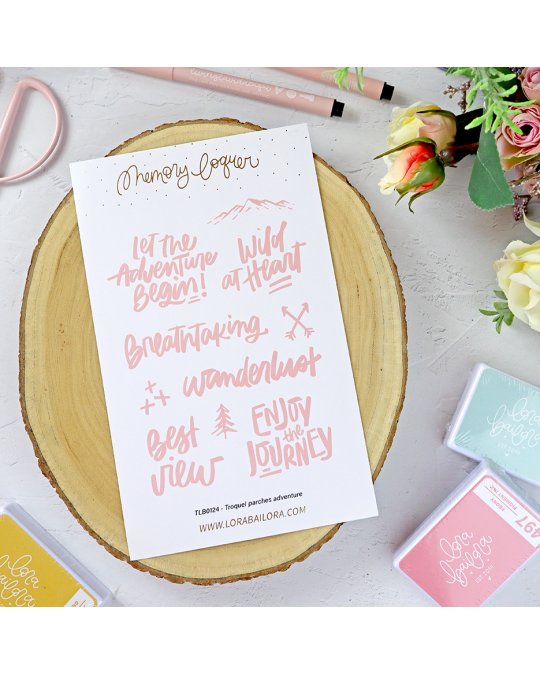 Memory Loquer
LET THE
Adventure
Begin!
Wild
at Heart
Breathtaking
wanderlust
Best
view
ENJOY
the
JOURNEY
TLB0124 - Troquel parches adventure
WWW.LORABAILORA.COM
lora
bailora
lora
bailora
497
PEONY
lora
bailora